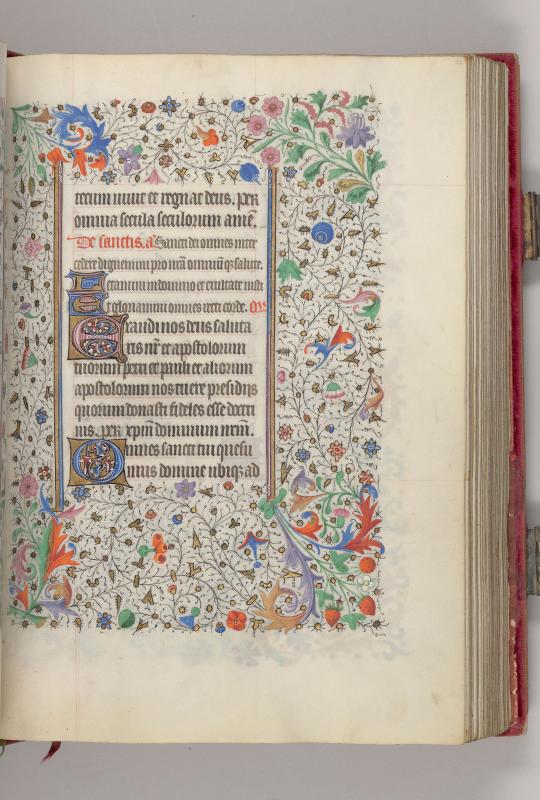 tecum viuit et regnat deus. per
omnia secula seculorum amē.
De sanctis. añ Sancti dei omnes inter
cedere dignemini pro nr̄a omniūq; salute.
Letamini in domino et exultate iusti
Et gloriamini omnes recti corde. Or̄o
Exaudi nos deus saluta
ris nr̄ et apostolorum
tuorum petri et pauli et aliorum
apostolorum nos tuere presidiis
quorum donasti fideles esse doctri
nis. per xp̄m dominum nr̄m.
Omnes sancti tui quesu
mus domine ubiq; ad